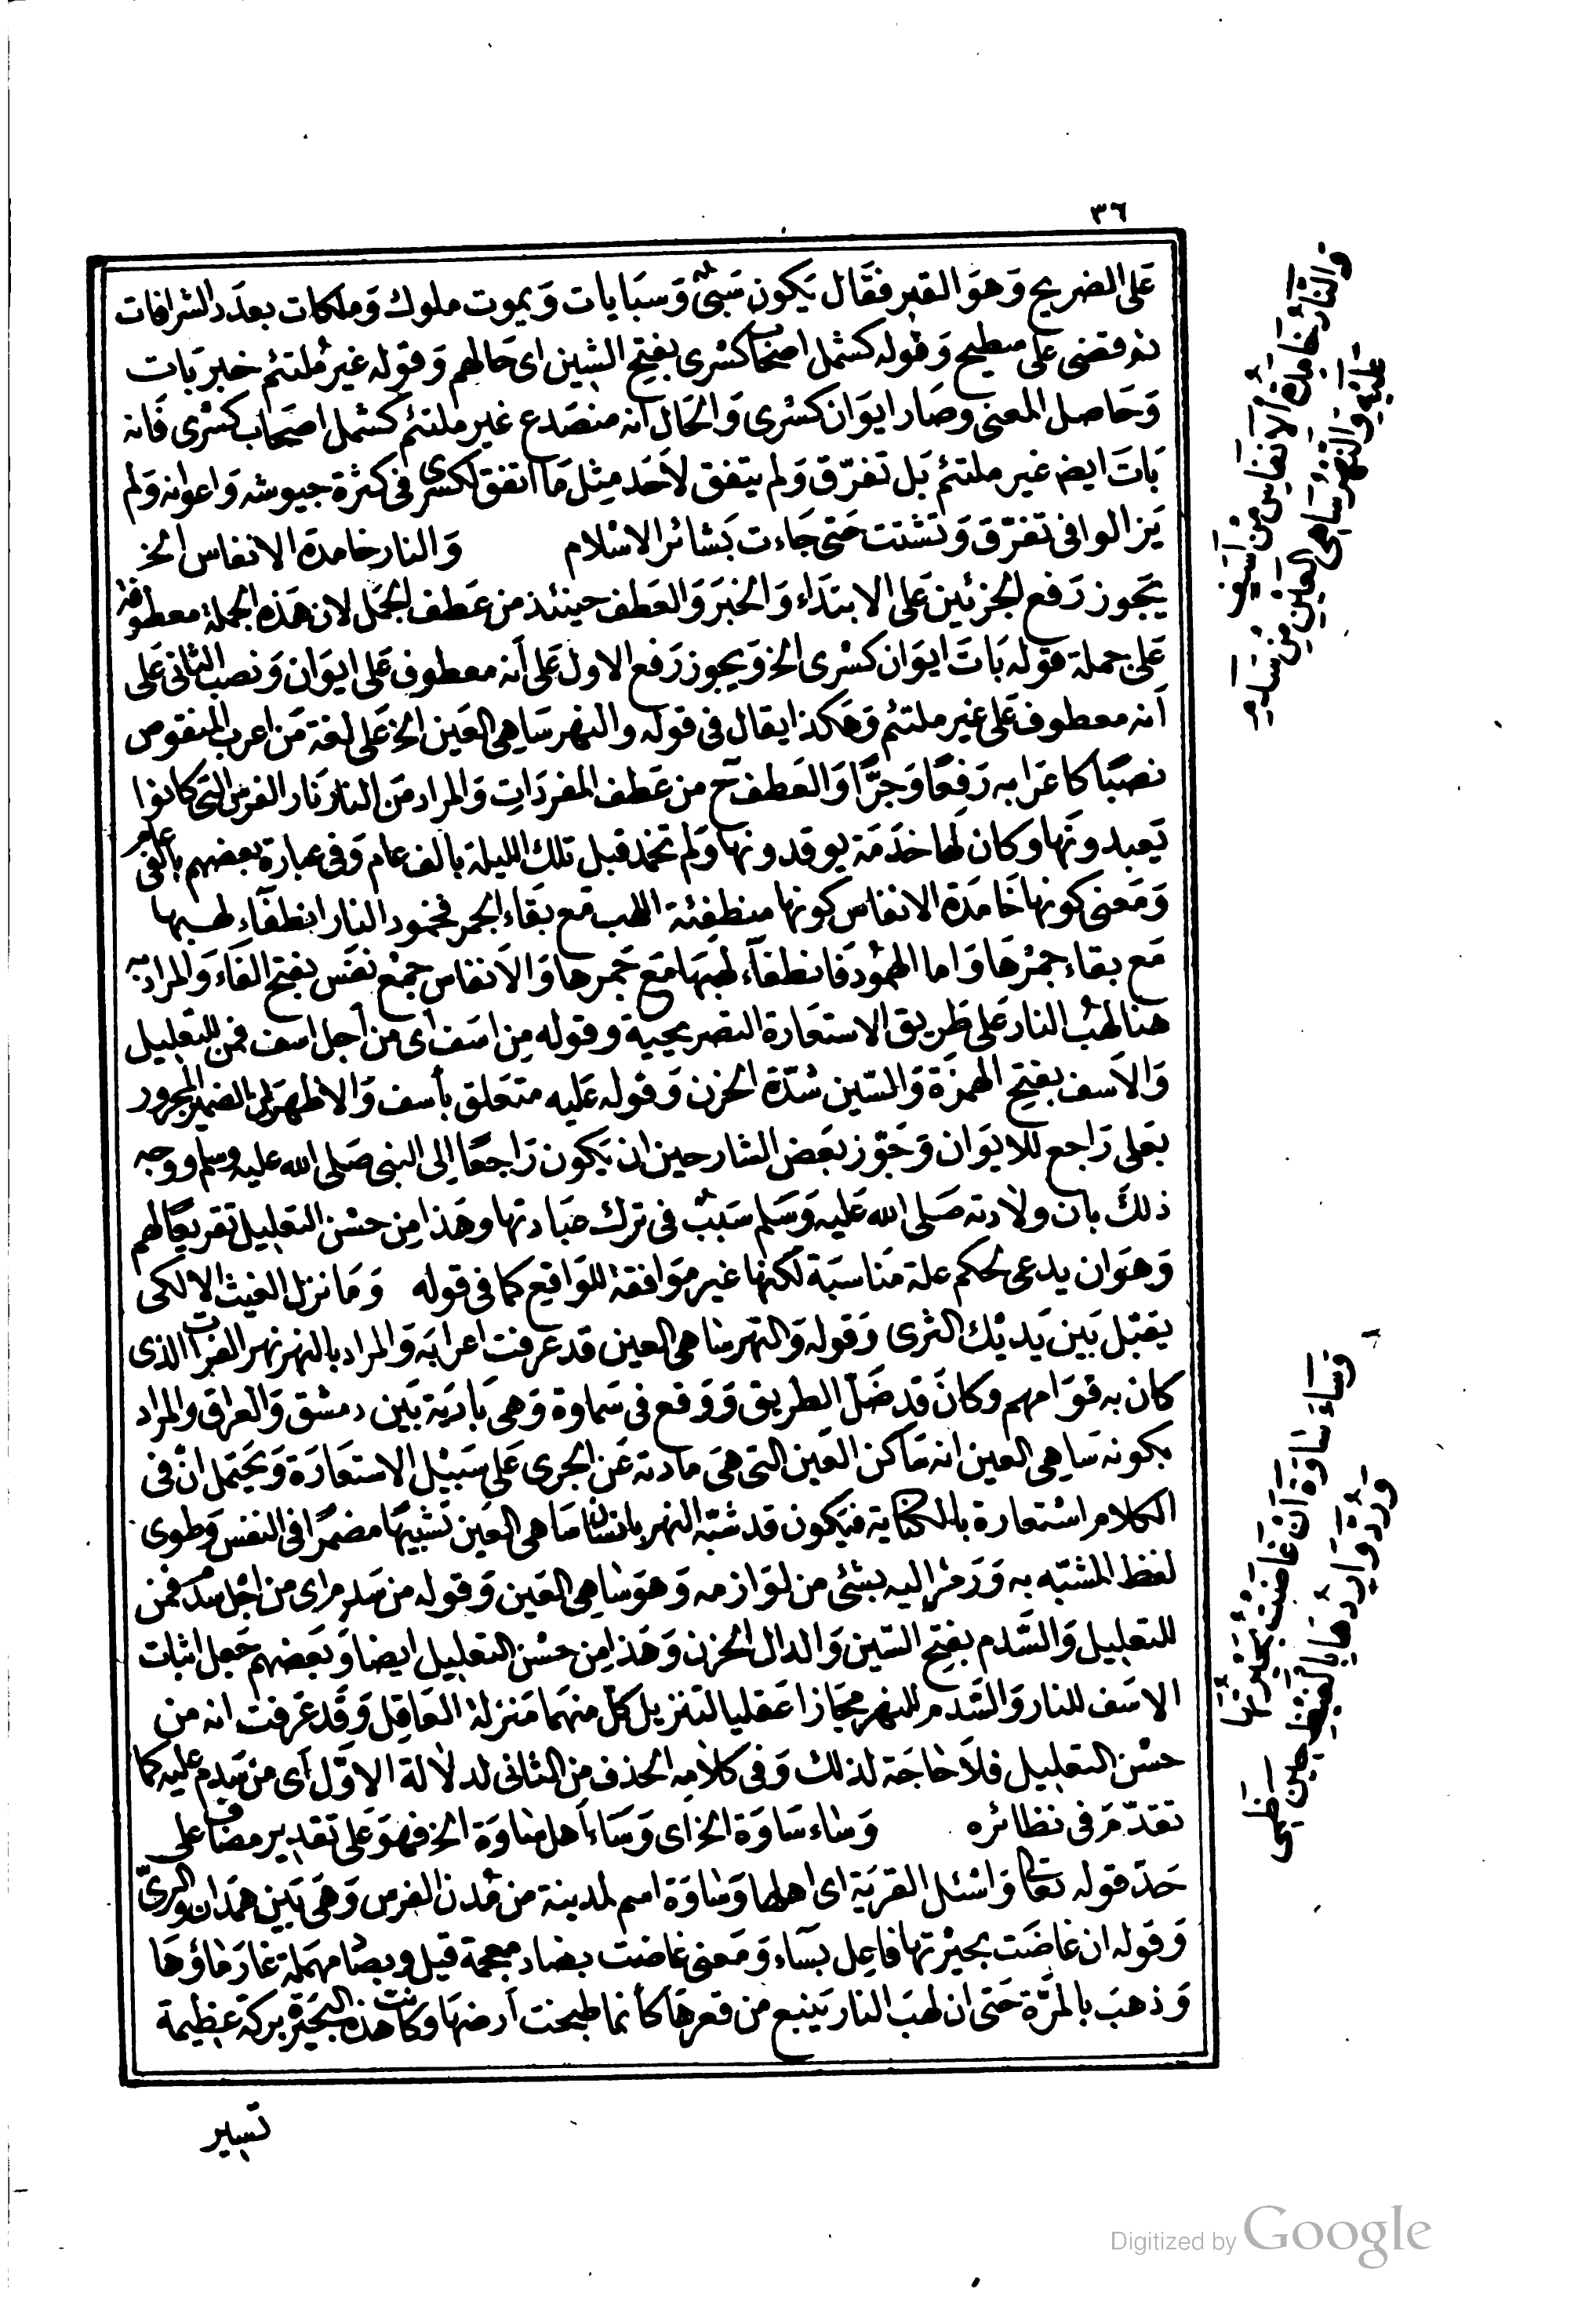 ٣٦
عَلى الضريح وَهوَ القبر فقَال يَكون سَبيٌ وَسبَايات وَيموت ملوك وَملكات بعدَد الشرافات
ثم قضى على سطيح وَقوله كشمل اصحاب كسْرى بفتح الشين اى حَالهم وَقوله غيرُ ملتئم خبر بَات
وَحَاصل المعنى وصَار ايوَان كسْرى وَالحَال انه منصَدع غير ملتئم كشمل اصحَاب كسْرى فَانه
بَاتَ ايض غير ملتئم بَل تفرّق وَلم يتفق لأحَد مِثل مَا اتفق لكسْرى فى كثرة جيوشه وَاعوانه وَلم
يَزالوا فى تفرّق وَتشتت حَتى جَاءت بَشائر الاسْلام وَالنار خامدَة الانفاس الخ
يجَوز رَفع الجزئين عَلى الابتدَاء وَالخبَر وَالعَطف حينئذ من عَطف الجمَل لان هَذه الجملة معطوفة
عَلى جملة قوله بَاتَ ايوَان كسْرى الخ وَيجوز رَفع الاول عَلى أنه معطوف عَلى ايوَان وَنصب الثانى عَلى
أنه معطوف عَلى غير ملتئم وَهَكذا يقال فى قوله والنهر سَاهى العَين الخ عَلى لغة مَن اعرب المنقوص
نصبًا كاعرَابه رَفعًا وَجرًّا وَالعَطف ح من عَطف المفردَاتِ وَالمراد مَن النار نَار الفرس التى كانوا
يَعبدونَها وكان لَها خَدَمَة يوقدونها وَلم تخمد قبل تلك الليلة بالف عام وَفى عبارة بعضهم بألفى عام
وَمَعنى كونها خَامدَة الانفاس كونها منطفئة اللهب مَع بقَاء الجمر فخمود النار انطفَاء لهبها
مَع بقاء جمرْهَا وَاما الهمُود فَانطفآء لهبَهَا مَع جَمرها وَالاَنفاس جمْع نفَس بفتح الفَاء وَالمراد به
هنا لهبُ النار عَلى طَريق الاستعَارة التصريحية وقوله مِن اسَف اى من أجل اسف فمن للتعليل
وَالاَسف بفتح الهمزَة وَالسّين شدّة الحزن وَقوله عَليه متعَلق بأسف وَالاظهَر ان الضمير المجرور
بعَلى رَاجع للايوَان وَجَوّز بَعض الشارحين ان يَكون رَاجعًا إلى النبى صَلى الله عليه وسلم ووجه
ذلكَ بان ولادته صَلى الله عَليه وَسَلم سَببٌ فى ترك عبَادتها وهَذا مِن حسْن التعليل تقريعًا لهم
وَهوَان يدعى لحكم علة مَناسبَة لكنها غير موَافقة للوَاقع كما فى قوله وَمَا نزل الغيث الا لكى
يقبّل بَين يَديْك الثرى وَقوله وَالنّهر سَاهى العين قد عرفت اعرابَه وَالمراد بالنهر نهر الفرات الذى
كان به قوَامهم وكانَ قد ضَلّ الطريق وَوَقع فى سَماوة وَهى بَادَية بَين دمشق وَالعراق والمراد
بكونه سَاهى العين انه سَاكن العَين التى هىَ مادته عَن الجرى عَلى سَبيْل الاستعَارَة وَيحَتمل انّ فى
الكلام استعارة بالكناية فيَكون قد شبّه النهر بانسَان سَاهى العَين تَشبيهًا مضمرًا فى النفس وَطوى
لفظ المشبّه به وَرَمز اليه بشئ من لوَازمه وَهوَ سَاهى العَين وَقوله من سَدم اى من اجْل سدَم فمن
للتعليل وَالسَّدم بفتح السّين وَالدال الحزن وَهَذا مِن حسْن التعليل ايضا وَبَعضهم جَعل اثبات
الاسَف للنار وَالسَّدم للنهر مجَازا عَقليا لتنزيل كلّ منهمَا مَنزلة العَاقِل وَقد عَرفت انه من
حسْن التعليل فلاَ حَاجَة لذلك وَفى كلاَمِه الحَذف مِن الثانى لدلالة الاوّل اَى من سَدم عليه كما
تقدّمَ فى نظائره وَسَاء سَاوَة الخ اى وَسَاءَ أهل سَاوَة الخ فهوَ عَلى تقدير مضاف على
حَدّ قوله تعَالى وَاسْئل القريَة اى اهلها وَسَاوَة اسم لمدينة من مُدن الفرس وَهَى بَين همَدان والرىّ
وَقوله ان غاضَت بحيرْتها فاعِل بسَاء وَمَعنى غاضت بضاد معجمة قيل وبصَاد مهمَلة غارَ مَاؤهَا
وَذهبَ بالمرَّة حَتى ان لهبَ النار يَنبع من قعرهَا كأنما طبخت أرضهَا وكانت هذه البحَيرة بركة عظيمة
تسير
وَالنَّارُ خَامِدَةُ الاَنفَاسِ مِنْ أَسَفٍ
عَلَيْهِ وَالنَّهْرُ سَاهِى العَيْنِ مِنْ سَدَمِ
وَسَاءَ سَاوَةَ أَنْ غَاضَتْ بُحَيْرَتُهَا
وَرُدَّ وَارِدُهَا بِالْغَيْظِ حِينَ ظَمِى
Digitized by Google